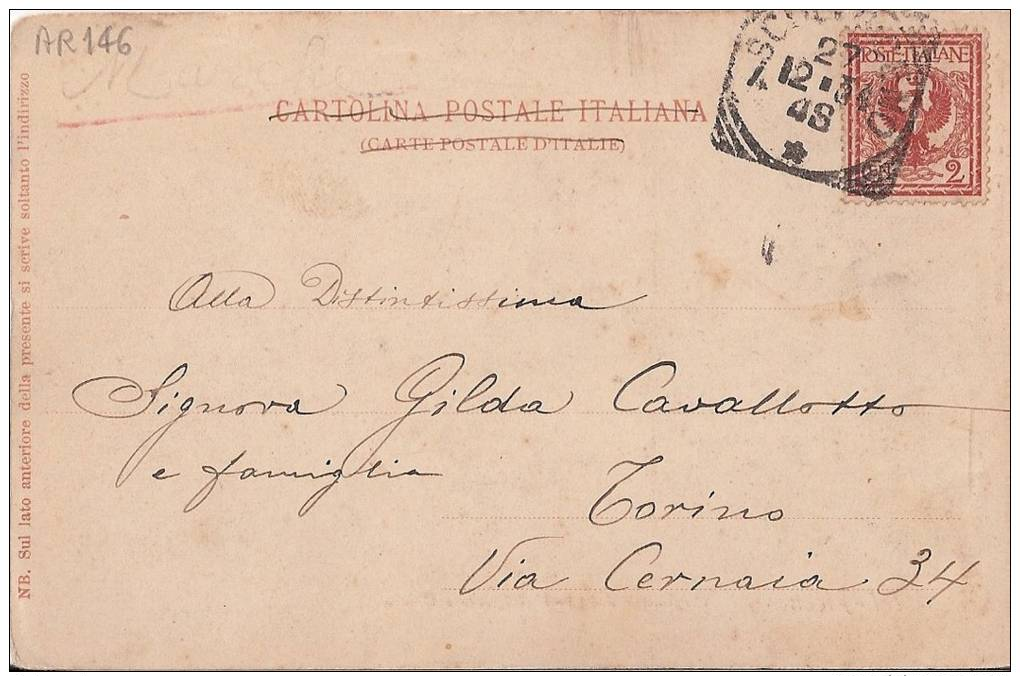 AR146
CARTOLINA POSTALE ITALIANA
(CARTE POSTALE D'ITALIE)
POSTE ITALIANE
2
27
12
Alla Distintissima
Signora Gilda Cavallotto
e famiglia
Torino
Via Cernaia 34
NB. Sul lato anteriore della presente si scrive soltanto l'indirizzo